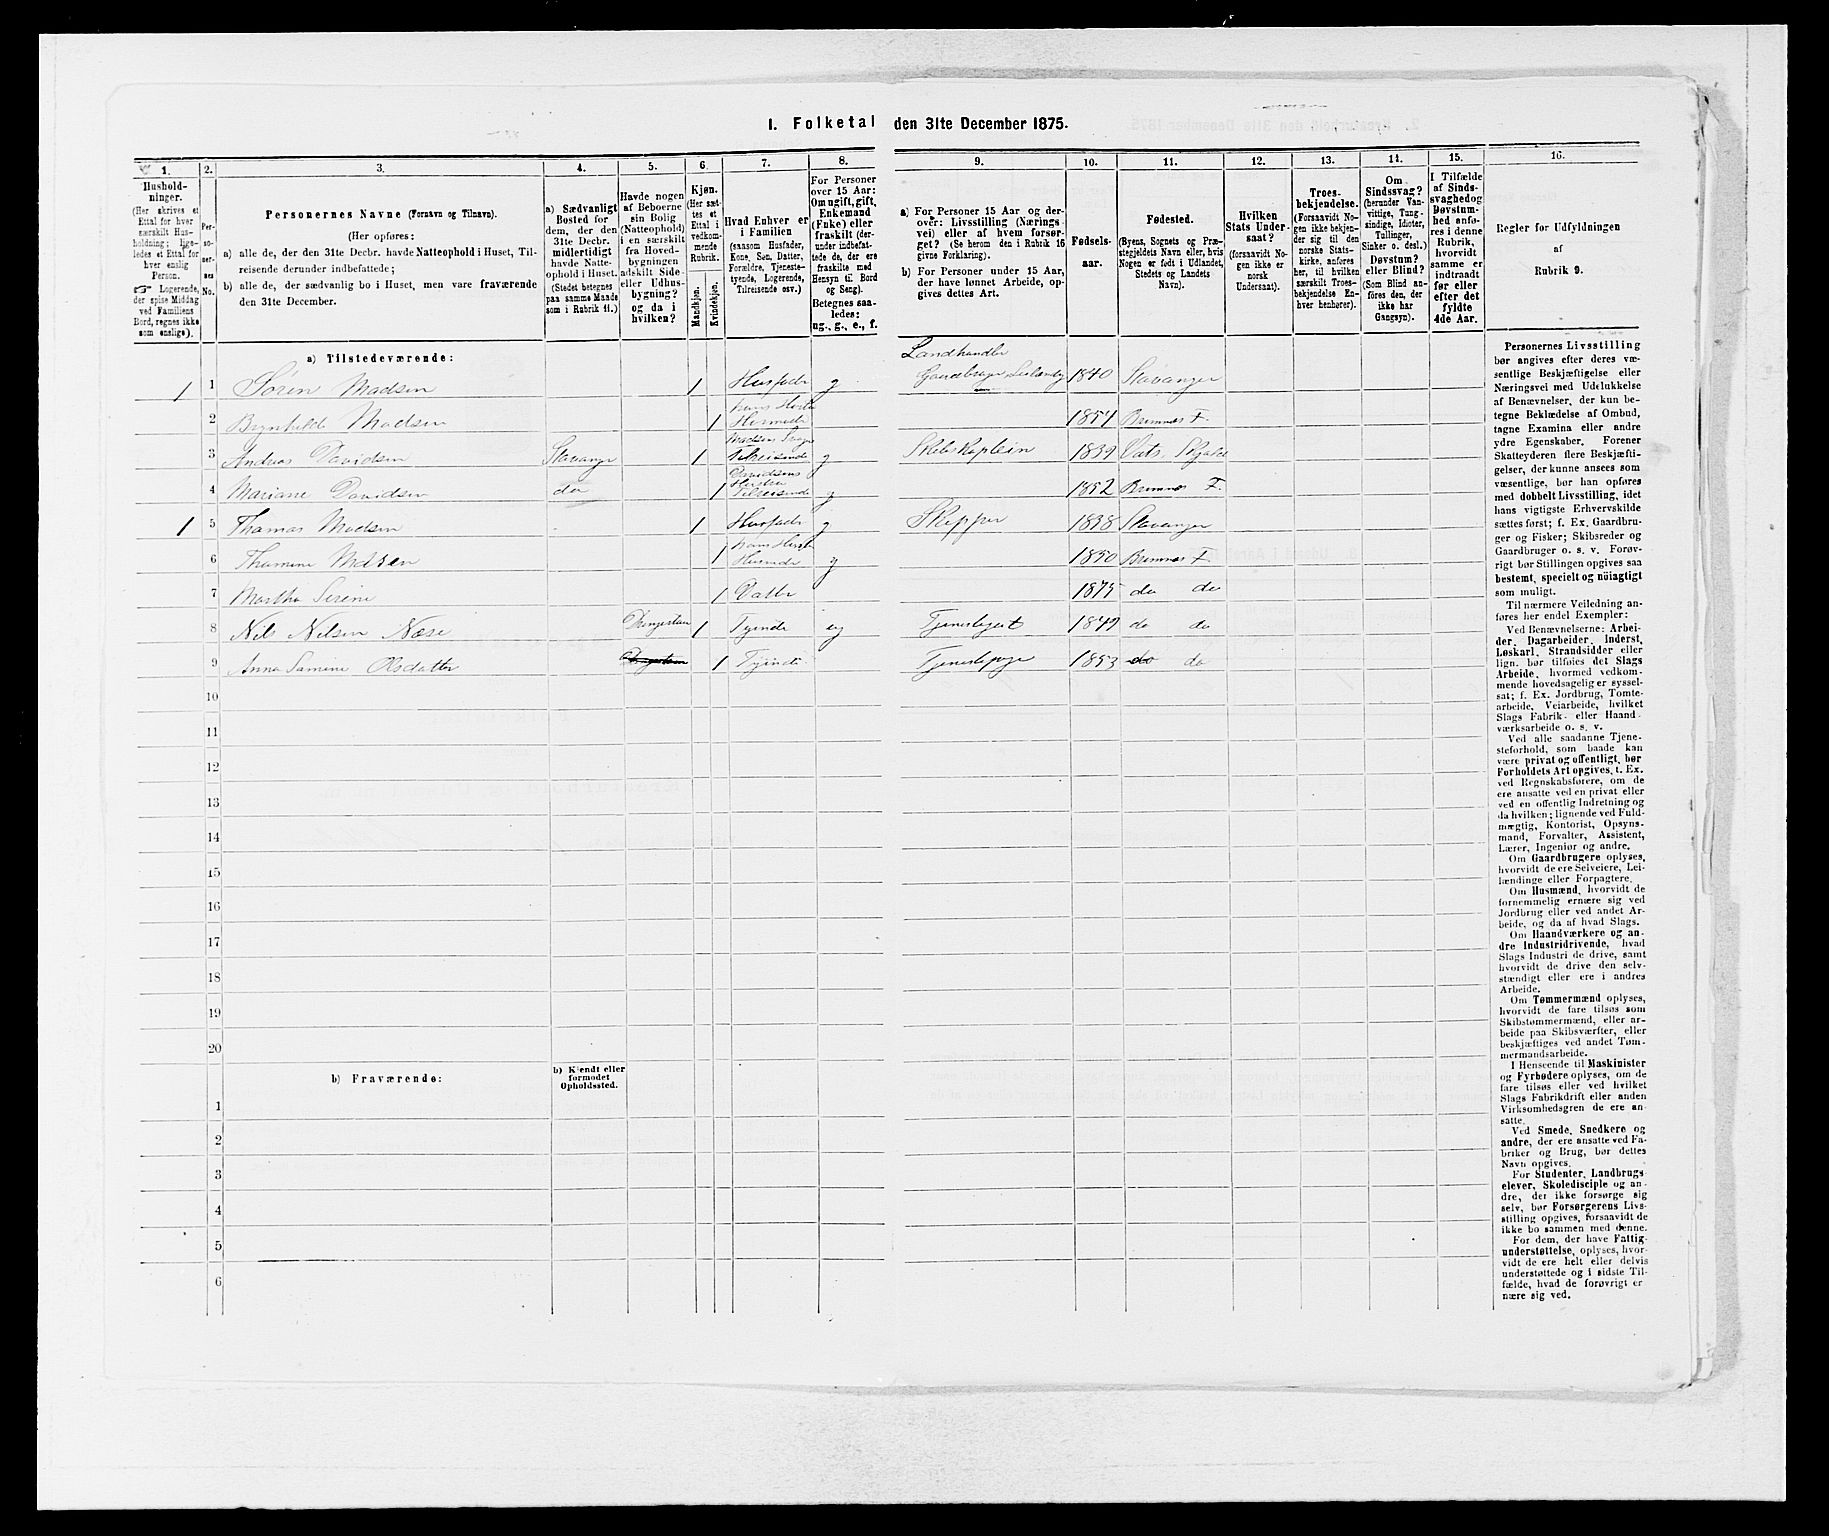 I. Folketal den 31te December 1875.
1. 2. 3. 4. 5. 6. 7. 8. 9. 10. 11. 12. 13. 14. 15. 16.
Hushold-
ninger.
(Her skrives et
Ettal for hver
særskilt Hus-
holdning; lige-
ledes et Ettal for
hver enslig
Person.
☞ Logerende,
der spise Middag
ved Familiens
Bord, regnes ikke
som enslige).
Per-
so-
ner-
nes
No.
Personernes Navne (Fornavn og Tilnavn).
(Her opføres:
a) alle de, der den 31te Decbr. havde Natteophold i Huset, Til-
reisende derunder indbefattede;
b) alle de, der sædvanlig bo i Huset, men vare fraværende
den 31te December.
a) Sædvanligt
Bosted for
dem, der den
31te Decbr.
midlertidigt
havde Natte-
ophold i Huset.
(Stedet betegnes
paa samme Maade
som i Rubrik 11.)
Havde nogen
af Beboerne
sin Bolig
(Natteophold)
i en særskilt
fra Hoved-
bygningen
adskilt Side-
eller Udhus-
bygning?
og da i
hvilken?
Kjøn.
(Her sæt-
tes et
Ettal i
vedkom-
mende
Rubrik.
Mandkjøn.
Kvindekjøn.
Hvad Enhver er
i Familien
(saasom Husfader,
Kone, Søn, Datter,
Forældre, Tjeneste-
tyende, Logerende,
Tilreisende osv.)
For Personer
over 15 Aar:
Om ugift, gift,
Enkemand
(Enke) eller
fraskilt (der-
under indbefat-
tede de, der ere
fraskilte med
Hensyn til Bord
og Seng).
Betegnes saa-
ledes:
ug., g., e., f.
a) For Personer 15 Aar og der-
over: Livsstilling (Nærings-
vei) eller af hvem forsør-
get? (Se herom den i Rubrik 16
givne Forklaring).
b) For Personer under 15 Aar,
der have lønnet Arbeide, op-
gives dettes Art.
Fødsels-
aar.
Fødested.
(Byens, Sognets og Præ-
stegjeldets Navn eller, hvis
Nogen er født i Udlandet,
Stedets og Landets
Navn).
Hvilken
Stats Under-
saat?
(forsaavidt No-
gen ikke er
norsk
Undersaat).
Troes-
bekjendelse.
(Forsaavidt No-
gen ikke bekjen-
der sig til den
norske Stats-
kirke, anføres
her, til hvilken
særskilt Troes-
bekjendelse En-
hver henhører).
Om
Sindssvag?
(herunder Van-
vittige, Tung-
sindige, Idioter,
Tullinger,
Sinker o. desl.)
Døvstum?
eller Blind?
(Som Blind an-
føres den, der
ikke har
Gangsyn).
I Tilfælde
af Sinds-
svaghed og
Døvstum-
hed anfø-
res i denne
Rubrik,
hvorvidt
samme er
indtraadt
før eller
efter det
fyldte
4de Aar.
Regler for Udfyldningen
af
Rubrik 9.
a) Tilstedeværende:
Landhandler
1 1 Søren Madsen 1 Husfader g Gaardbruger Leilænding 1840 Stavanger
hans Hustru
2 Brynhild Madsen 1 Husmoder 1854 Bremnes F.
3 Andreas Davidsen Stavanger 1 Tilreisende g Skibskaptein 1839 Vats, Skjold
Davidsens
Hustru
4 Mariane Davidsen do 1 Tilreisende g 1852 Bremnes F.
1 5 Thomas Madsen 1 Husfader g Skipper 1838 Stavanger
hans Hustru
6 Thomine Madsen 1 Husmoder g 1850 Bremnes F.
7 Martha Serine 1 Datter 1875 do do
8 Nils Nilsen Næse Drengestuen 1 Tyende ug Tjenestegut 1849 do do
9 Anna Samine Olsdatter 1 Tyende Tjenestepige 1853 do do
10
11
12
13
14
15
16
17
18
19
20
b) Fraværende:
b) Kjendt eller
formodet
Opholdssted.
1
2
3
4
5
6
Personernes Livsstilling
bør angives efter deres væ-
sentlige Beskjæftigelse eller
Næringsvei med Udelukkelse
af Benævnelser, der kun be-
tegne Beklædelse af Ombud,
tagne Examina eller andre
ydre Egenskaber. Forener
Skatteyderen flere Beskjæfti-
gelser, der kunne ansees som
væsentlige, bør han opføres
med dobbelt Livsstilling, idet
hans vigtigste Erhvervskilde
sættes først; f. Ex. Gaardbru-
ger og Fisker; Skibsreder og
Gaardbruger o. s. v. Forøv-
rigt bør Stillingen opgives saa
bestemt, specielt og nöiagtigt
som muligt.
Til nærmere Veiledning an-
føres her endel Exempler:
Ved Benævnelserne: Arbei-
der, Dagarbeider, Inderst,
Løskarl, Strandsidder eller
lign. bør tilføies det Slags
Arbeide, hvormed vedkom-
mende hovedsagelig er syssel-
sat; f. Ex. Jordbrug, Tomte-
arbeide, Veiarbeide, hvilket
Slags Fabrik- eller Haand-
værksarbeide o. s. v.
Ved alle saadanne Tjene-
steforhold, som baade kan
være privat og offentligt, bør
Forholdets Art opgives, t. Ex.
ved Regnskabsførere, om de
ere ansatte ved en privat eller
ved en offentlig Indretning og
da hvilken; lignende ved Fuld-
mægtig, Kontorist, Opsyns-
mand, Forvalter, Assistent,
Lærer, Ingeniør og andre.
Om Gaardbrugere oplyses,
hvorvidt de ere Selveiere, Lei-
lændinge eller Forpagtere.
Om Husmænd, hvorvidt de
fornemmelig ernære sig ved
Jordbrug eller ved andet Ar-
beide, og da af hvad Slags.
Om Haandværkere og an-
dre Industridrivende, hvad
Slags Industri de drive, samt
hvorvidt de drive den selv-
stændigt eller ere i andres
Arbeide.
Om Tømmermænd oplyses,
hvorvidt de fare tilsøs som
Skibstømmermænd, eller ar-
beide paa Skibsværfter, eller
beskjæftiges ved andet Tøm-
mermandsarbeide.
I Henseende til Maskinister
og Fyrbødere oplyses, om de
fare tilsøs eller ved hvilket
Slags Fabrikdrift eller anden
Virksomhedsgren de ere an-
satte.
Ved Smede, Snedkere og
andre, der ere ansatte ved Fa-
briker og Brug, bør dettes
Navn opgives.
For Studenter, Landbrugs-
elever, Skoledisciple og an-
dre, der ikke forsørge sig
selv, bør Forsørgerens Livs-
stilling opgives, forsaavidt de
ikke bo sammen med denne.
For dem, der have Fattig-
understøttelse, oplyses, hvor-
vidt de ere helt eller delvis
understøttede og i sidste Til-
fælde, hvad de forøvrigt er
nære sig ved.